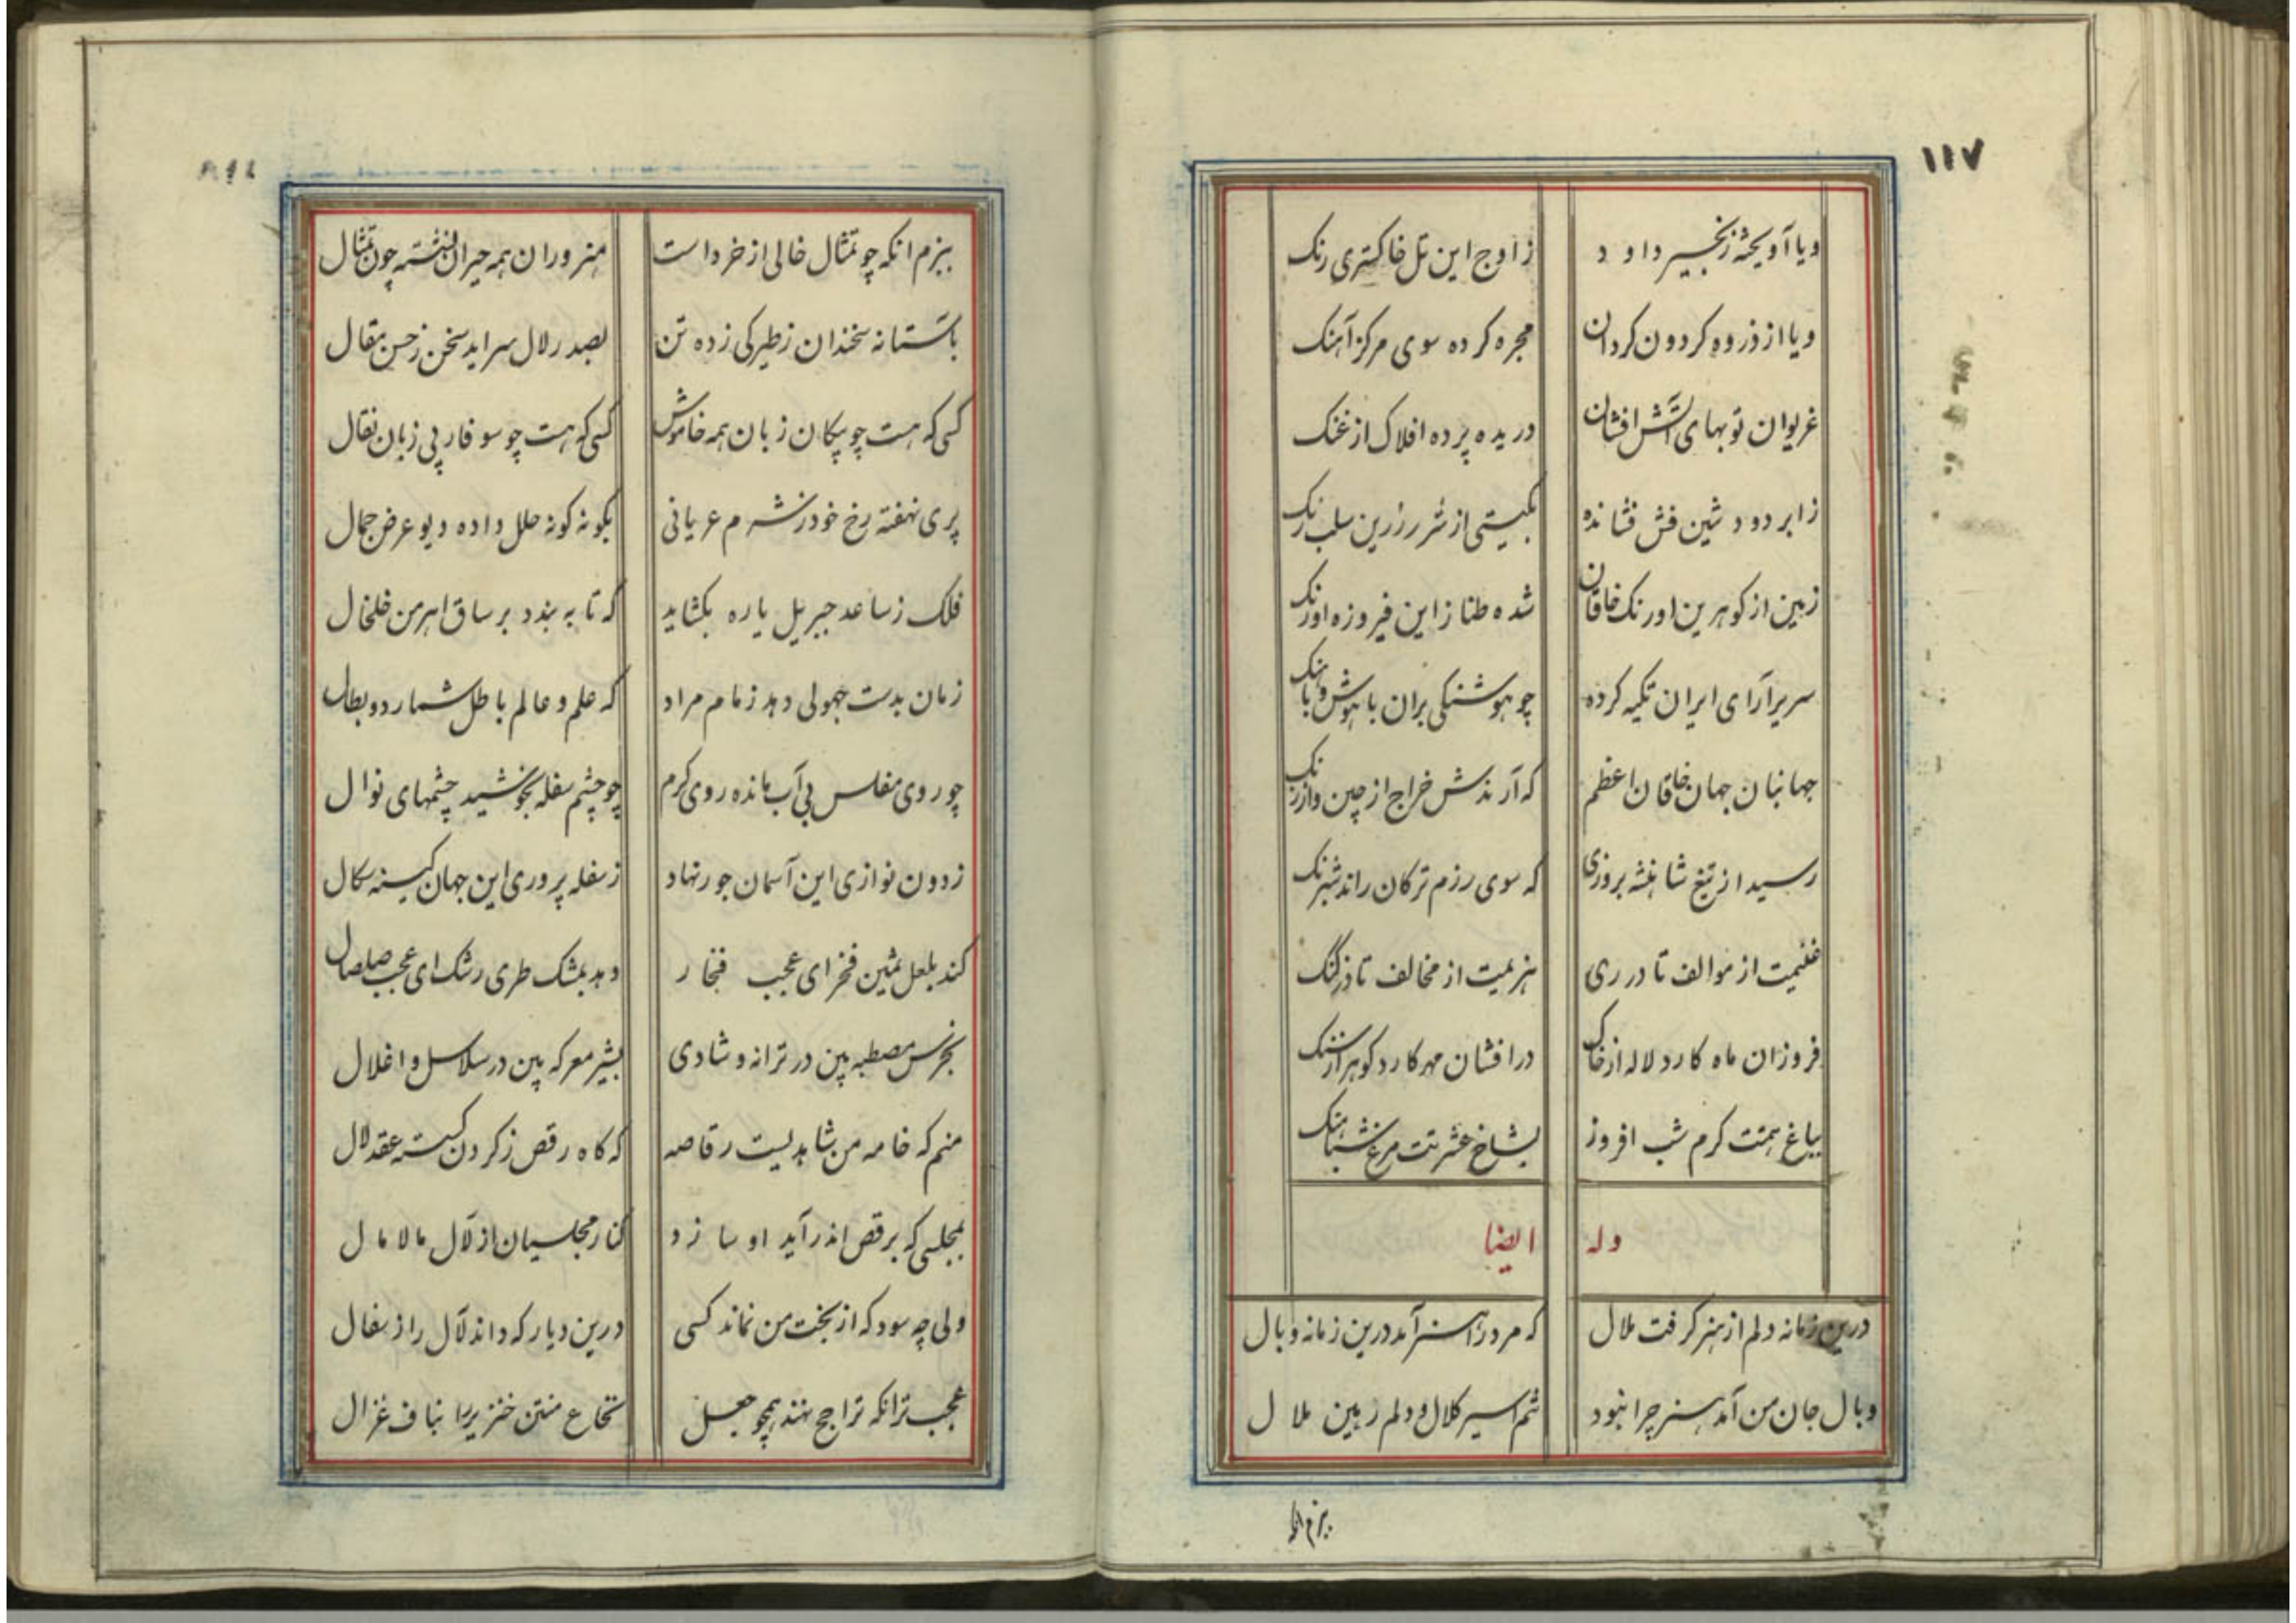 ۱۱۷
ویا آویخته زنجیر داود زاوج این تل خاکستری رنک
ویا از ذروه کردون کردان مجره کرده سوی مرکز آهنک
غریوان توبهای آتش افشان دریده پرده افلاک از غنک
زابر دود شین فش فشانده بکیتی از شرر زرین سلب رنک
زمین از کوهرین اورنک خاقان شده طناز این فیروزه اورنک
سریر آرای ایران تکیه کرده چو هوشنکی بران باهوش وباهنک
جهانبان جهان خاقان اعظم که آرندش خراج از چین واز زنک
رسید از تیغ شاهنشه بروزی که سوی رزم ترکان راند شبرنک
غنیمت از موالف تا در ری هزیمت از مخالف تا در کنک
فروزان ماه کارد لاله از خاک در افشان مهر کارد کوهر از سنک
بباغ همتت کرم شب افروز بشاخ عشرتت مرغ شباهنک
وله ایضا
درین زمانه دلم از هنر کرفت ملال که مرد را هنر آمد درین زمانه وبال
وبال جان من آمد هنر چرا نبود تنم اسیر کلال و دلم رهین ملال
بزم انکه
بزم انکه چو تمثال خالی از خرد است هنروران همه حیران نشسته چون تمثال
باستانه سخندان زطیرکی زده تن بصدر لال سراید سخن زحسن مقال
کسی که هست چو پیکان زبان همه خاموش کسی که هست چو سوفار بی زبان نقال
پری نهفته رخ خود زشرم عریانی بکونه کونه حلل داده دیو عرض جمال
فلک زساعد جبریل یاره بکشاید که تا به بندد بر ساق اهرمن خلخال
زمان بدست جهولی دهد زمام مراد که علم و عالم باطل شمارد و بطال
چو روی مفلس بی آب مانده روی کرم چو چشم سفله بخوشید چشمهای نوال
زدون نوازی این آسمان جور نهاد زسفله پروری این جهان کینه سکال
کند بلعل ثمین فخر ای عجب فخار دهد بمشک طری رشک ای عجب صلصال
بخرس مصطبه بین در ترانه و شادی بشیر معرکه بین در سلاسل و اغلال
منم که خامه من شاهدیست رقاصه که کاه رقص زکردن کسسته عقد لال
بمجلسی که برقص اندر آید او سازد کنار مجلسیان از لآل مالامال
ولی چه سود که از بخت من نماند کسی درین دیار که داند لآل را ز سفال
عجب تر انکه تراجح نهند همچو جعل نخاع منتن خنزیر را بناف غزال